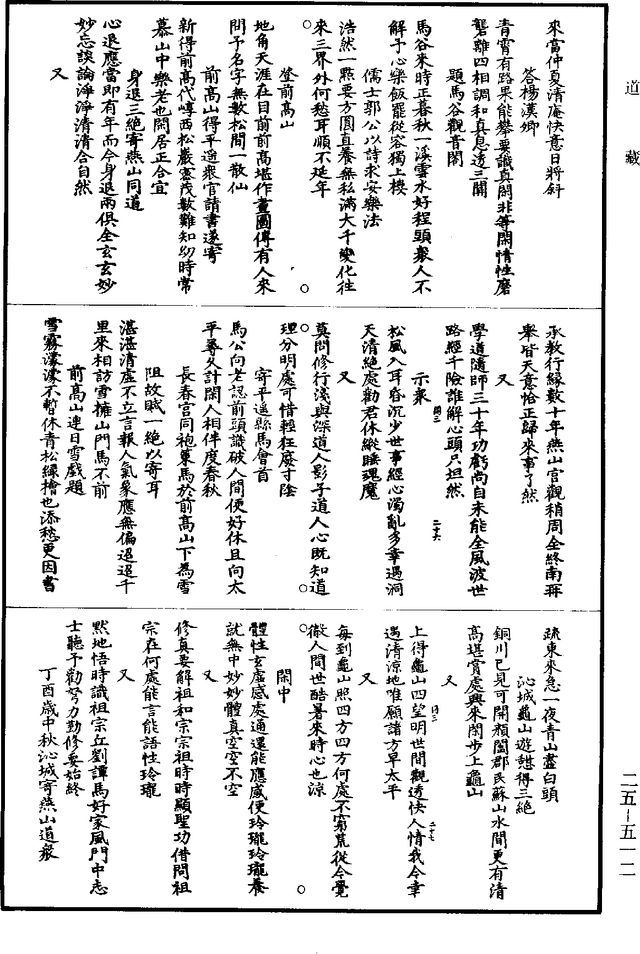 道藏
來當仲夏清庵快意日將斜
答楊漢卿
青霄有路果能攀要識真閑非等閑情性磨
礱離四相調和真息透三關
題馬谷觀音閣
馬谷來時正暮秋一溪雲水好程頭衆人不
解予心樂飯罷從容獨上樓
儒士郭公以詩求安樂法
浩然一點要方圓直養無私滿大千變化往
來三界外何愁耳順不延年
登前高山
地角天涯在目前前高堪作畫圖傳有人來
問予名字無數松間一散仙
前高山得平遥衆官請書遂寄
新得前高代崞西松巖塞茂數難知幼時常
慕山中樂老也閑居正合宜
身退三絶寄燕山同道
心退應當即有年而今身退兩俱全玄玄妙
妙忘談論淨淨清清合自然
又
承教行緣數十年燕山宫觀稍周全終南再
舉皆天意恰正歸來事了然
又
學道隨師三十年功虧尚自未能全風波世
路經千險誰解心頭只坦然
示衆
二十六
松風入耳昏沉少世事經心濁亂多幸遇洞
天清絶處勸君休縱睡魂魔
又
莫問修行淺與深道人影子道人心既知道
理分明處可惜輕狂廢寸陰
寄平遥縣馬會首
馬公向老認前頭識破人間便好休且向太
平尋久計閑人相伴度春秋
長春宫同袍萬馬於前高山下為雪
阻故賦一絶以寄耳
湛湛清虚不立言報人氣象應無偏迢迢千
里來相訪雪擁山門馬不前
前高山連日雪戲題
雪霧濛濛不暫休青松緑檜也添愁更因書
疏東來急一夜青山盡白頭
沁城龜山遊憩得三絶
銅川已見可開顔闔郡民蘇山水間更有清
高堪賞處興來閑步上龜山
又
二十七
上得龜山四望明世間觀透快人情我今幸
遇清涼地唯願諸方早太平
又
每到龜山照四方四方何處不窮荒從今覺
徹人間世酷暑來時心也涼
閑中
體性玄虚感處通還能應感便玲瓏玲瓏養
就無中妙妙體真空空不空
又
修真要解祖和宗宗祖時時顯聖功借問祖
宗在何處能言能語性玲瓏
又
默地悟時識祖宗丘劉譚馬好家風門中志
士聽予勸努力勤修要始終
丁酉歲中秋沁城寄燕山道衆
二五-五一二